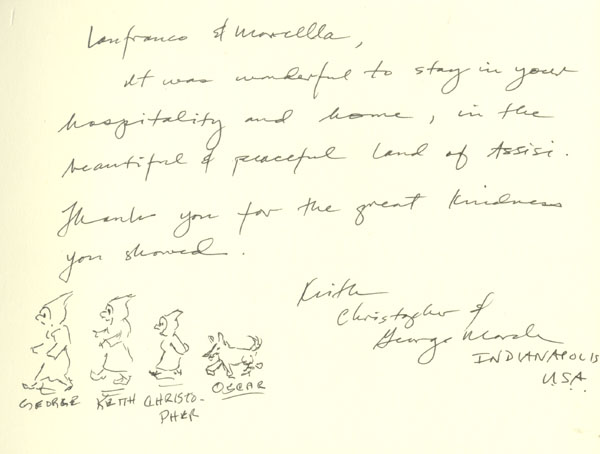 Lanfranco & Marcella,
It was wonderful to stay in your
hospitality and home, in the
beautiful & peaceful land of Assisi.
Thank you for the great kindness
you showed.
Keith
Christopher &
George
INDIANAPOLIS
USA
GEORGE KEITH CHRISTO-
PHER
OSCAR